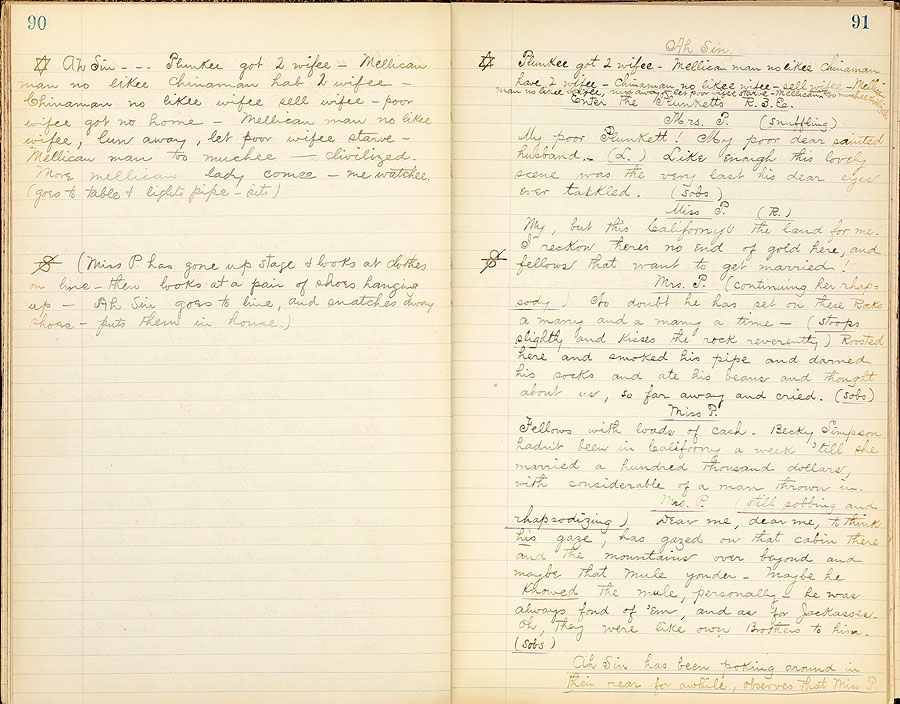 90
Ah Sin - - - Plunkee got 2 wifee - Mellican
man no likee Chinaman hab 2 wifee -
Chinaman no likee wifee sell wifee - poor
wifee got no home - Mellican man no likee
wifee, lun away, let poor wifee starve -
Mellican man too muchee - civilized.
More mellican lady comee - me watchee
(goes to table & lights pipe - sits)
(Miss P. has gone up stage & looks at clothes
on line - then looks at a pair of shoes hanging
up - Ah Sin goes to line, and snatches away
shoes - puts them in house.)
91
Ah Sin.
Plunkee got 2 wifee - Mellican man no likee Chinaman
have 2 wifee - Chinaman no likee wifee - sell wifee - Mellican
man no likee wifee, run away & let poor wifee starve - Mellican too muchee
Enter the Plunketts R. 3. E.
Mrs. P. (Snuffling)
My poor Plunkett! My poor dear sainted
husband. - (L.) Like enough this lovely
scene was the very last his dear eyes
ever tackled. (Sobs)
Miss P. (R.)
My, but this Californy's the land for me.
I reckon theres no end of gold here, and
fellows that want to get married!
Mrs. P. (continuing her rhap-
sody) No doubt he has set on these Rocks
a many and a many a time - (Stoops
slightly and kisses the rock reverently) Roosted
here and smoked his pipe and darned
his socks and ate his beans and thought
about us, so far away and cried. (Sobs)
Miss P.
Fellows with loads of cash. Becky Simpson
hadn't been in Californy a week 'till she
married a hundred thousand dollars,
with considerable of a man thrown in.
Mrs. P. still sobbing and
rhapsodizing) Dear me, dear me, to think
his gaze, has gazed on that cabin there
and the mountains over beyond and
maybe that mule yonder - Maybe he
knowed the mule, personally - he was
always fond of 'em, and as for Jackasses.
Oh, they were like own Brothers to him.
(Sobs)
Ah Sin has been poking around in
their rear for awhile, observes that Miss P.